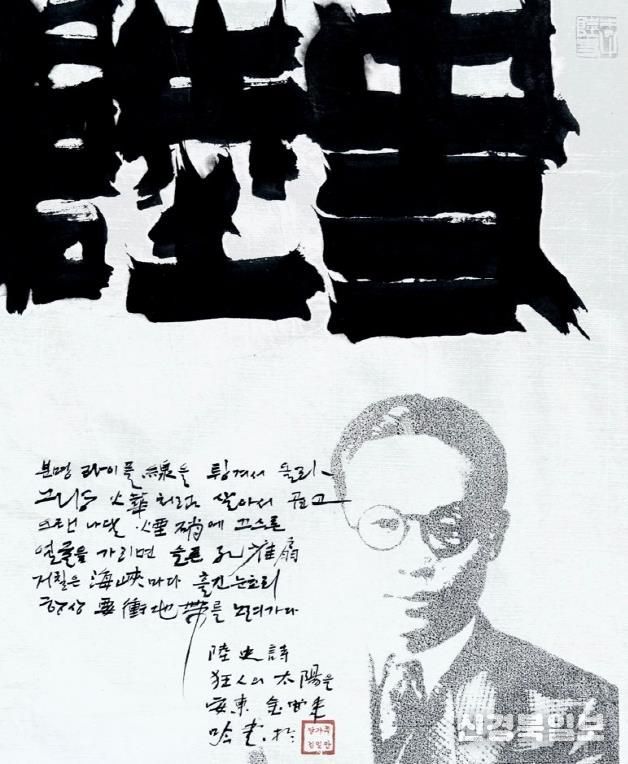 분명 라이풀 線을 튕겨서 올라
그냥 火華처럼 살아서 곱고
오랜 나달 煙硝에 끄스른
얼굴을 가리면 슬픈 孔雀扇
거칠은 海峽마다 흘긴 눈초리
항상 要衝地帶를 노려가다
陸史詩
狂人의 太陽을
安東 金
신경북일보